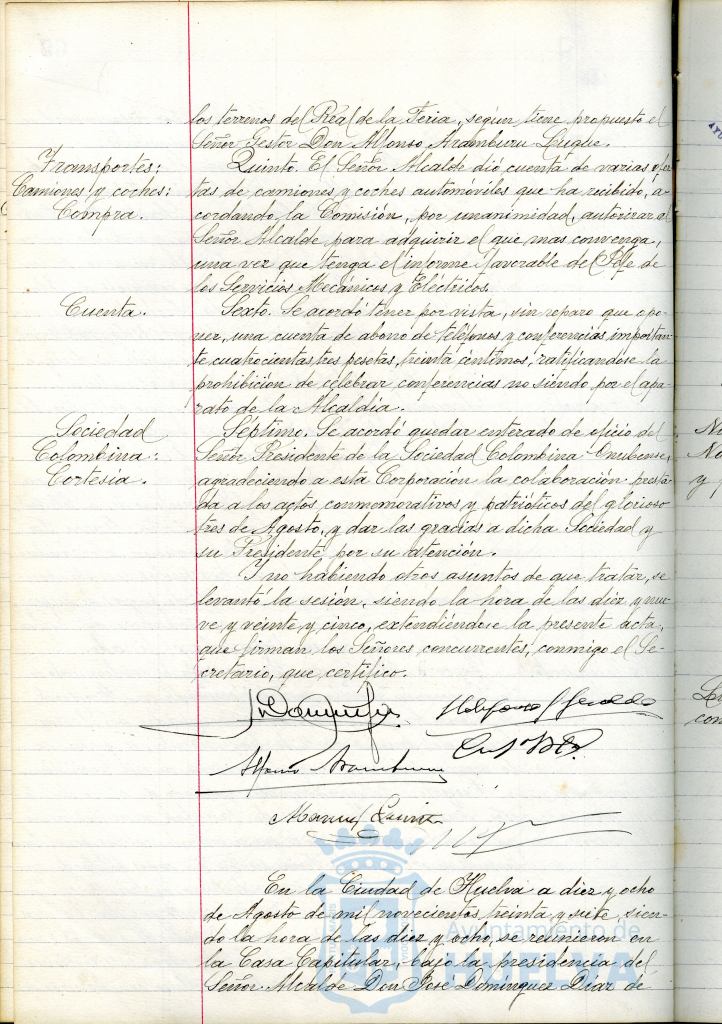 los terrenos del Real de la Feria, según tiene propuesto el
Señor Gestor Don Alfonso Aramburu Luque.
Transportes:
Camiones y coches:
Compra.
Quinto. El Señor Alcalde dió cuenta de varias ofer
tas de camiones y coches automóviles que ha recibido, a
cordando la Comisión, por unanimidad, autorizar al
Señor Alcalde para adquirir el que mas convenga,
una vez que tenga el informe favorable del Jefe de
los Servicios Mecánicos y Eléctricos.
Cuenta.
Sexto. Se acordó tener por vista, sin reparo que opo
ner, una cuenta de abono de teléfonos y conferencias importan
te cuatrocientas tres pesetas, treinta céntimos, ratificandose la
prohibición de celebrar conferencias no siendo por el apa
rato de la Alcaldía.
Sociedad
Colombina:
Cortesía.
Septimo. Se acordó quedar enterado de oficio del
Señor Presidente de la Sociedad Colombina Onubense,
agradeciendo a esta Corporación la colaboración presta
da a los actos conmemorativos y patrióticos del glorioso
tres de Agosto, y dar las gracias a dicha Sociedad y
su Presidente por su atención.
Y no habiendo otros asuntos de que tratar, se
levantó la sesión, siendo la hora de las diez y nue
ve y veinte y cinco, extendiéndose la presente acta,
que firman los Señores concurrentes, conmigo el Se-
cretario, que certifico.
Alfonso Aramburu
Manuel
En la Ciudad de Huelva a diez y ocho
de Agosto de mil novecientos treinta y siete, sien
do la hora de las diez y ocho, se reunieron en
la Casa Capitular, bajo la presidencia del
Señor Alcalde Don José Dominguez Diaz de
Ayuntamiento de
HUELVA